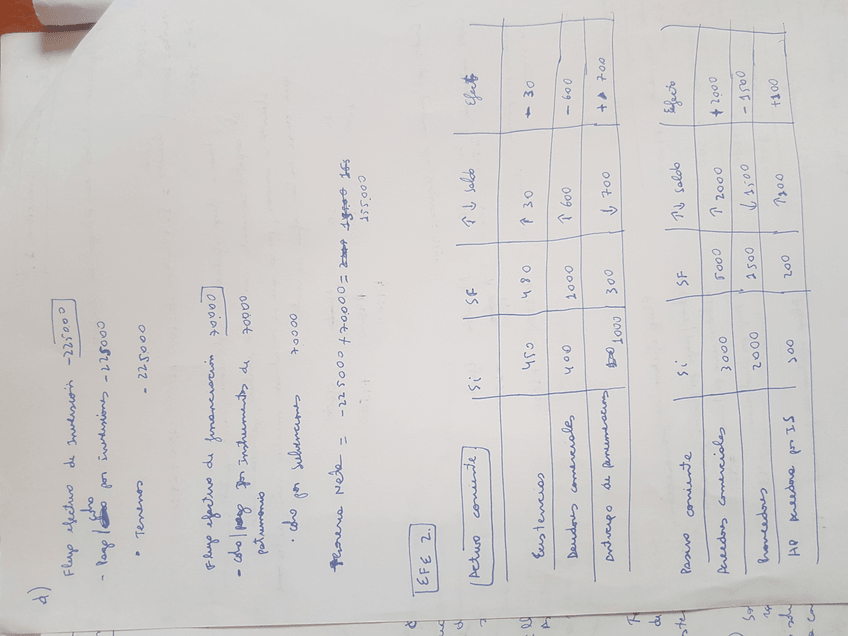 d)
Flujo efectivo de Inversión -225000
- Pago/cobro por inversiones -225000
• Terrenos -225000
Flujo efectivo de financiación 70000
- Cobro/pago por instrumentos de 70000
patrimonio
• cobro por subvenciones 70000
Tesorería Neta = -225000 + 70000 =
155.000
EFE 2.
Activo corriente Si SF ↑↓ Saldo Efecto
Existencias 450 480 ↑ 30 - 30
Deudores comerciales 400 1000 ↑ 600 - 600
Anticipo de remuneraciones 1000 300 ↓ 700 + 700
Pasivo corriente Si SF ↑↓ Saldo Efecto
Acreedores comerciales 3000 5000 ↑ 2000 + 2000
Proveedores 2000 ↓ 1500 - 1500
HP acreedora por IS 200 +100